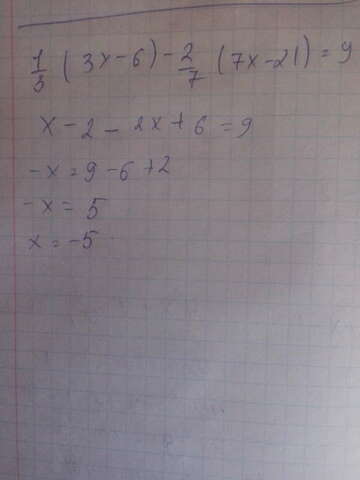 1/3 (3x-6) - 2/7 (7x-21) = 9
x - 2 - 2x + 6 = 9
-x = 9 - 6 + 2
-x = 5
x = -5